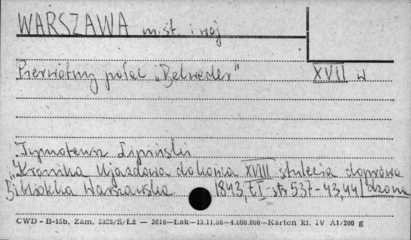 WARSZAWA m. st. i woj
Pierwotny pałac „Belweder” XVII w
Tymoteusz Lipiński
"Kronika Ujazdowa do końca XVIII stulecia doprowa
Biblioteka Warszawska 1843, T I str 537-43, 441 dzona
CWD - B-15b. Zam. 5323/S/Łż — 3616—Łak—15.11.56—4.600.000—Karton kl. IV A1/200 g